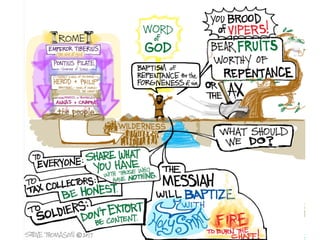 ROME
EMPEROR TIBERIUS
PONTIUS PILATE
HEROD + PHILIP
ANNAS + CAIAPHAS
the people
WORD
of
GOD
BAPTISM of
REPENTANCE for the
FORGIVENESS of sin
YOU BROOD
of VIPERS!
BEAR FRUITS
WORTHY OF
REPENTANCE
OR
THE AX
WILDERNESS
WHAT SHOULD
WE DO?
TO
EVERYONE:
SHARE WHAT
YOU HAVE
WITH THOSE WHO
HAVE NOTHING
TO
TAX COLLECTORS:
BE HONEST
TO
SOLDIERS:
DON'T EXTORT
BE CONTENT
THE
MESSIAH
WILL BAPTIZE
WITH
HOLY SPIRIT
FIRE
TO BURN THE
CHAFF
STEVE THOMASON © 2017